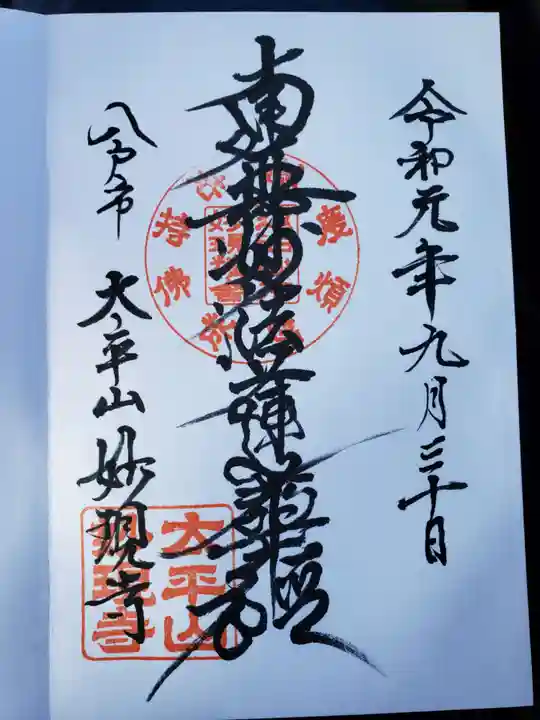 令和元年九月三十日
南無妙法蓮華経
八戸市 大平山 妙現寺
大平山
妙現寺
持佛